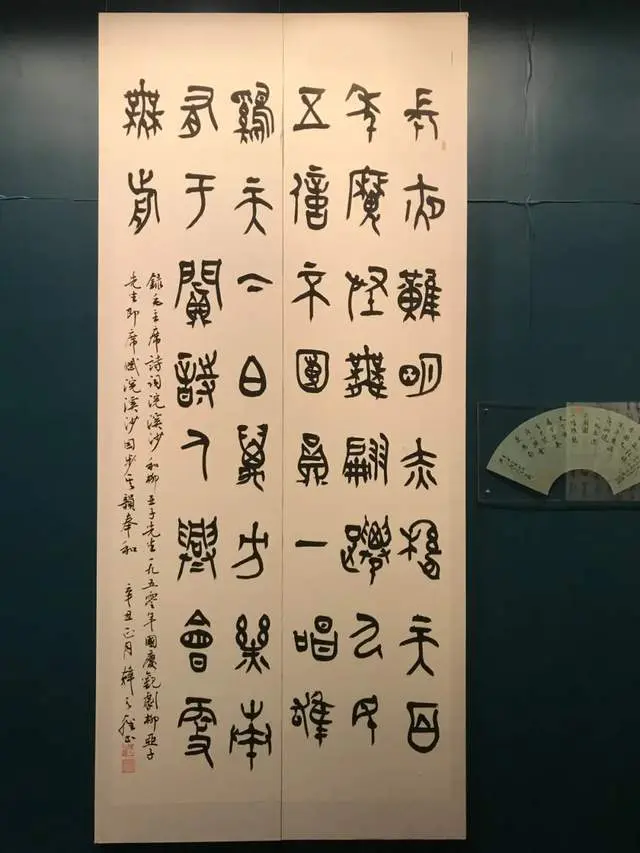 長夜難明赤縣天百
年魔怪舞翩躚人民
五億不團員一唱雄
鷄天下白萬方樂奏
有于闐詩人興會更
無前
錄毛主席詩詞浣溪沙和柳亞子先生一九五零年國慶觀劇柳亞子
先生即席賦浣溪沙因步其韻奉和 辛丑正月韓